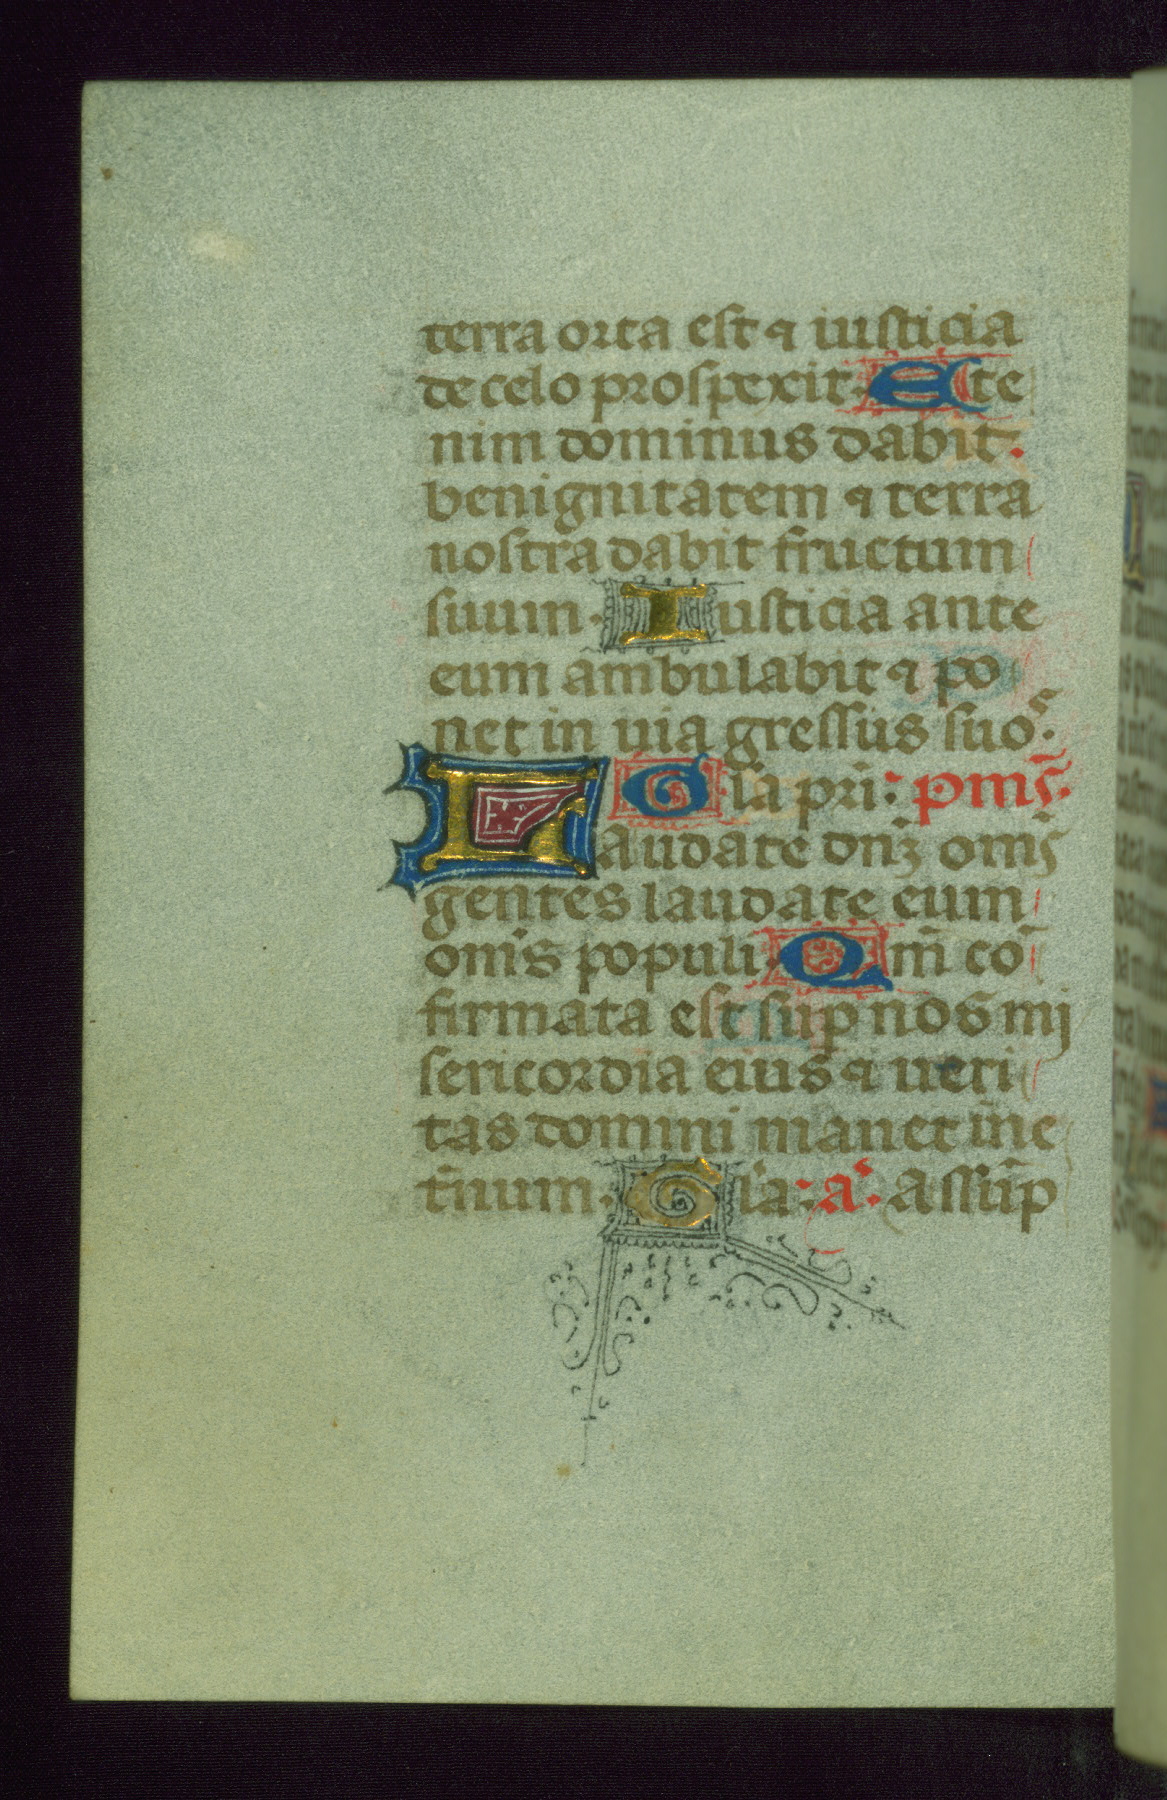 terra orta est ⁊ iusticia
de celo prospexit. Ete
nim dominus dabit.
benignitatem ⁊ terra
nostra dabit fructum
suum. Iusticia ante
eum ambulabit ⁊ po
net in uia gressus suos.
Gl̃a pri: pms̃.
Laudate dnȝ̃ om̃s
gentes laudate eum
om̃s populi. Qm̃ co̅
firmata est sup nos mi
sericordia eius ⁊ ueri
tas domini manet in̅ e
t̃num. Gl̃a: a. Assu̅p